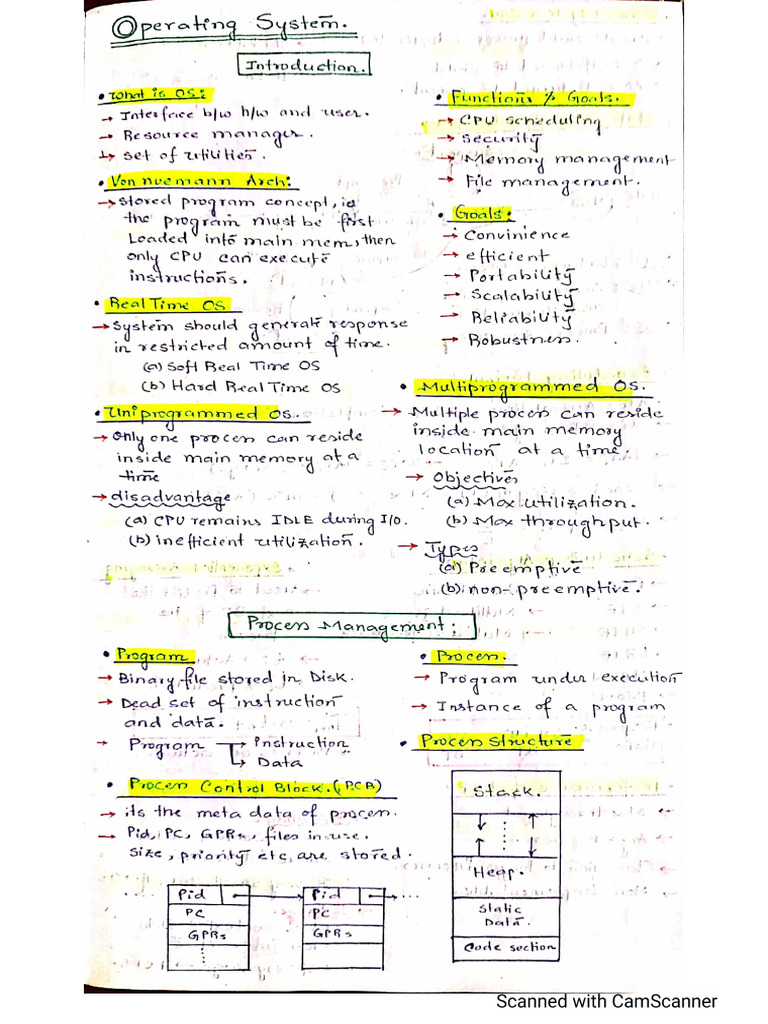 Operating System.
Introduction.
• What is OS:
→ Interface b/w h/w and user.
→ Resource manager.
→ set of utilities.
• Von nuemann Arch:
→ stored program concept, ie
the program must be first
Loaded into main mem, then
only CPU can execute
instructions.
• Real Time OS
→ System should generate response
in restricted amount of time.
(a) Soft Real Time OS
(b) Hard Real Time OS
• Uniprogrammed OS.
→ Only one process can reside
inside main memory at a
time
→ disadvantage
(a) CPU remains IDLE during I/O.
(b) inefficient utilization.
• Functions & Goals.
→ CPU scheduling
→ Security
→ Memory management
→ File management.
• Goals:
→ Convinience
→ efficient
→ Portability
→ Scalability
→ Reliability
→ Robustness.
• Multiprogrammed OS.
→ Multiple process can reside
inside main memory
location at a time.
→ Objectives
(a) Max utilization.
(b) Max throughput.
→ Types
(a) Preemptive
(b) non-preemptive.
Process Management:
• Program
→ Binary file stored in Disk.
→ Dead set of instruction
and data.
→ Program → Instruction
↳ Data
• Process Control Block. (PCB)
→ its the meta data of process.
→ Pid, PC, GPRs, files in use.
size, priority etc, are stored.
Pid
PC
GPRs
Pid
PC
GPRs
• Process.
→ Program under execution
→ Instance of a program
• Process Structure
Stack.
Heap.
Static
Data.
Code section
Scanned with CamScanner